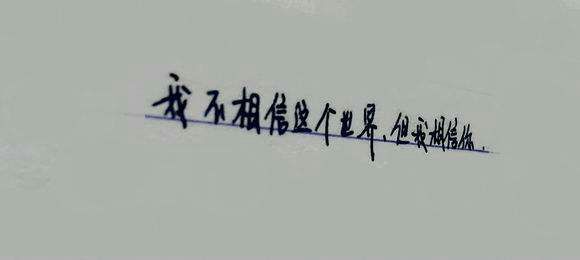 我不相信这个世界，但我相信你.